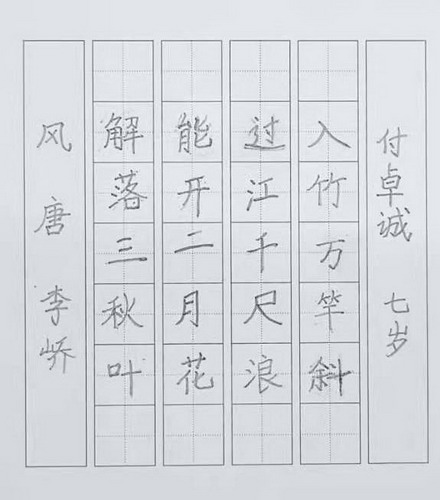 风 唐 李峤
解落三秋叶
能开二月花
过江千尺浪
入竹万竿斜
付卓诚 七岁